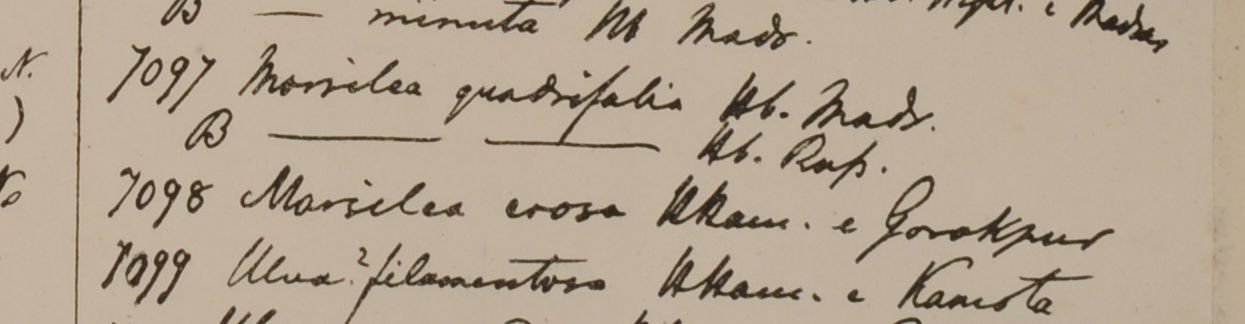 B — minuta Hb Madr.
7097 Marsilea quadrifalia Hb. Madr.
B — — Hb. Rup.
7098 Marsilea erosa HHam. e Gorakpur
7099 Ulva? filamentosa HHam. e Kamota